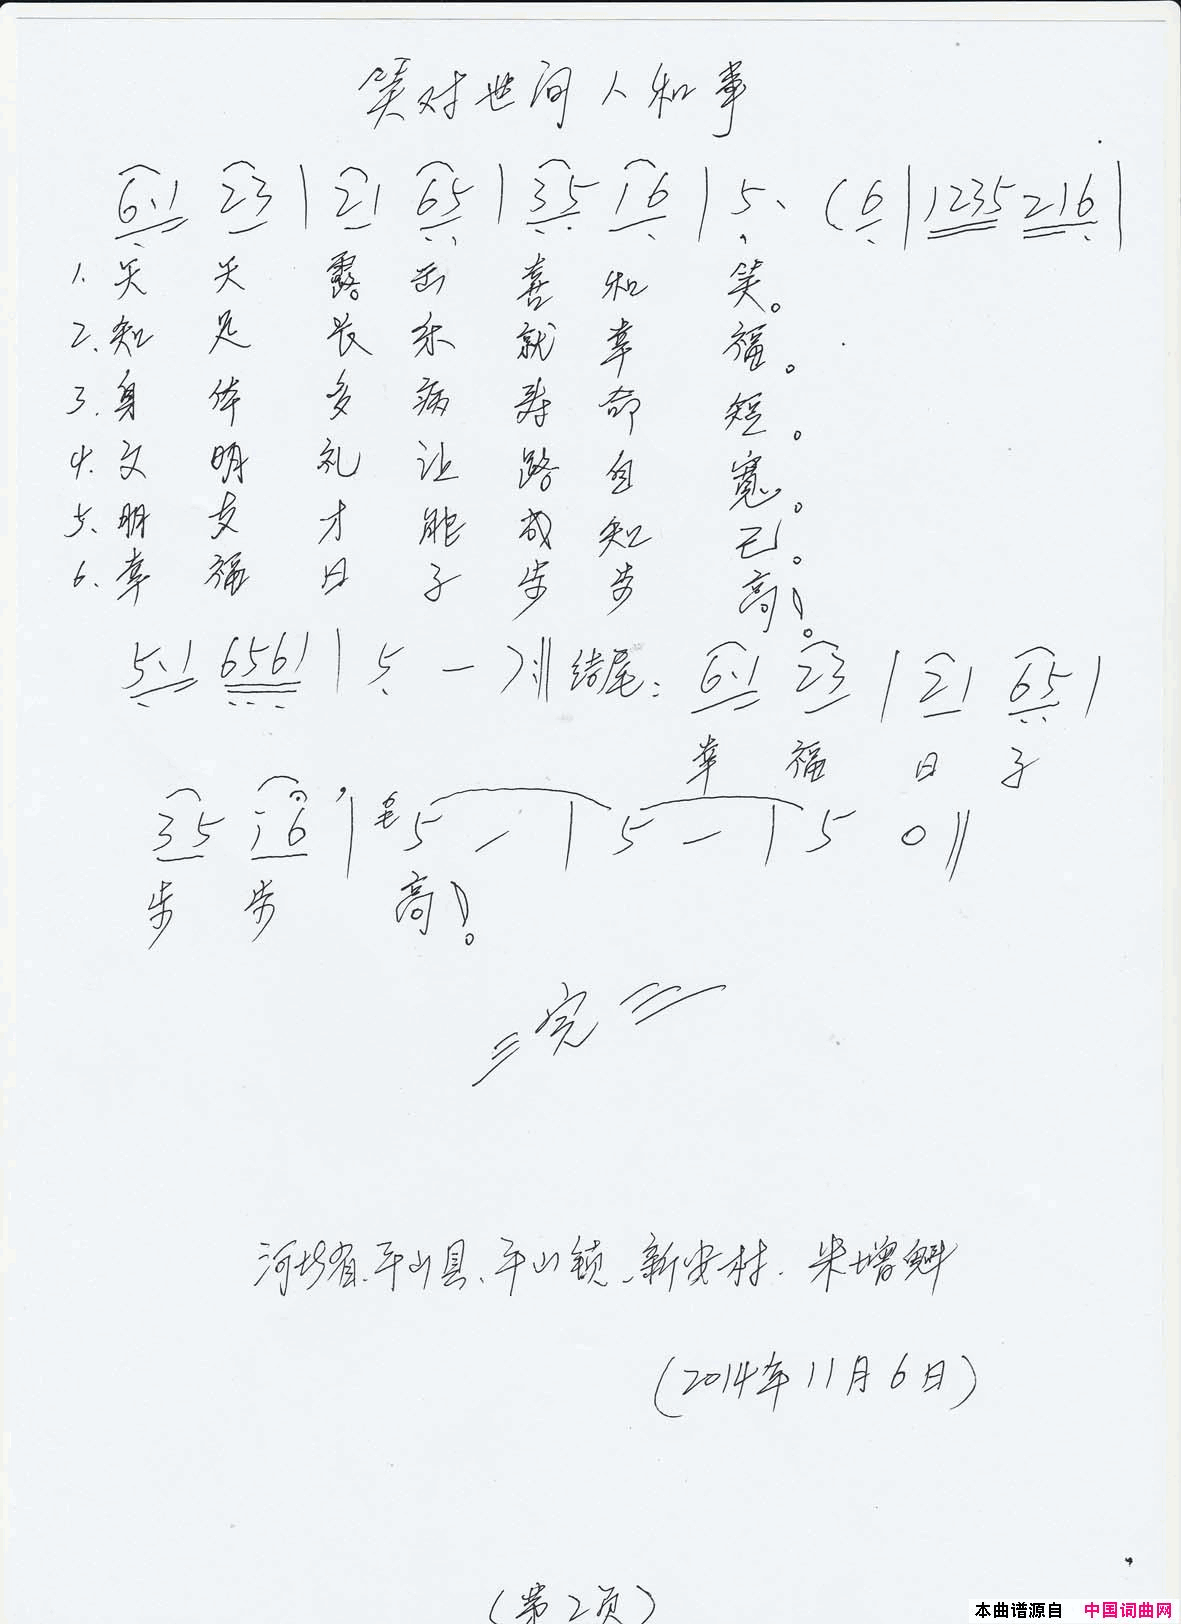 笑对世间人和事
6·1 23 | 21 65 | 35 16 | 5· (6 | 1235 216 |
1. 天 天 露 出 喜 和 笑。
2. 知 足 长 乐 就 幸 福。
3. 身 体 多 病 寿 命 短。
4. 文 明 礼 让 路 自 宽。
5. 朋 友 才 能 成 知 己。
6. 幸 福 日 子 步 步 高!
5·1 6561 | 5 — ):‖ 结尾: 6·1 23 | 21 65 |
幸 福 日 子
35 i6 | 5 — | 5 — | 5 0 ‖
步 步 高!
=完=
河北省、平山县、平山镇、新安村. 朱增魁
(2014年11月6日)
(第2页)
本曲谱源自 中国词曲网